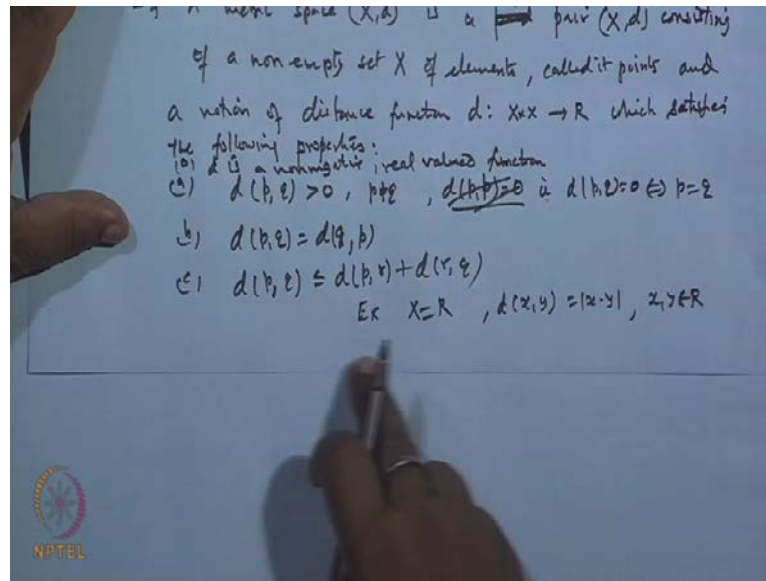 A metric space (X,d) is a pair (X,d) consisting
of a non empty set X of elements, called it points and
a notion of distance function d: X×X → R which satisfies
the following properties:
(0) d is a nonnegative, real valued function
(a) d(p,q) >0, p≠q, d(p,p)=0 ie d(p,q)=0 ⇔ p=q
(b) d(p,q) = d(q,p)
(c) d(p,q) ≤ d(p,r)+d(r,q)
Ex X=R, d(x,y) =|x-y|, x,y∈R
NPTEL